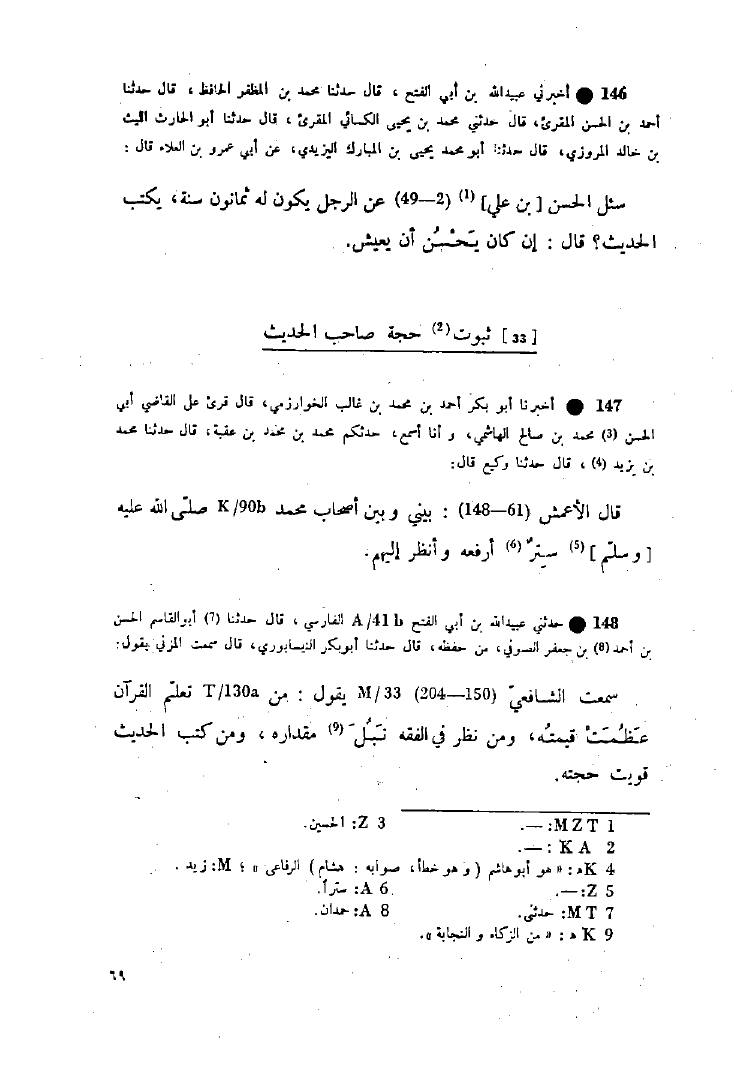 146 ● أخبرني عبيدالله بن أبي الفتح ، قال حدثنا محمد بن المظفر الحافظ ، قال حدثنا
أحمد بن الحسن المقرئ، قال حدثني محمد بن يحيى الكسائي المقرئ ، قال حدثنا أبو الحارث الليث
بن خالد المروزي، قال حدثنا أبو محمد يحيى بن المبارك اليزيدي، عن أبي عمرو بن العلاء قال :
سئل الحسن [ بن علي] (1) (2—49) عن الرجل يكون له ثمانون سنة، يكتب
الحديث؟ قال : إن كان يَحْسُنُ أن يعيش.
[ 33 ] ثبوت (2) حجة صاحب الحديث
147 ● أخبرنا أبو بكر أحمد بن محمد بن غالب الخوارزمي، قال قرئ على القاضي أبي
الحسن (3) محمد بن صالح الهاشمي، و أنا أسمع، حدثكم محمد بن محمد بن عقبة، قال حدثنا محمد
بن يزيد (4) ، قال حدثنا وكيع قال:
قال الأعمش (61—148) : بيني و بين أصحاب محمد K/90b صلّى الله عليه
[ و سلّم ] (5) سِترٌ (6) أرفعه و أنظر إليهم.
148 ● حدثني عبيدالله بن أبي الفتح A/41b الفارسي ، قال حدثنا (7) أبوالقاسم الحسن
بن أحمد (8) بن جعفر الصوفي، من حفظه، قال حدثنا أبوبكر النيسابوري، قال سمعت المزني يقول:
سمعت الشافعيّ (150—204) M/33 يقول : من T/130a تعلّم القرآن
عَظُمَتْ قيمتُه، ومن نظر في الفقه نَبُلَ (9) مقداره ، ومن كتب الحديث
قويت حجته.
1 MZT: —.
3 Z: الحسين.
2 KA : —.
4 Kه : « هو أبوهاشم ( و هو خطأ، صوابه : هشام ) الرفاعى » ؛ M: زيد .
5 Z: —.
6 A: ستراً.
7 MT: حدثنى.
8 A: حمدان.
9 Kه : « من الزكاء و النجابة ».
٦٩